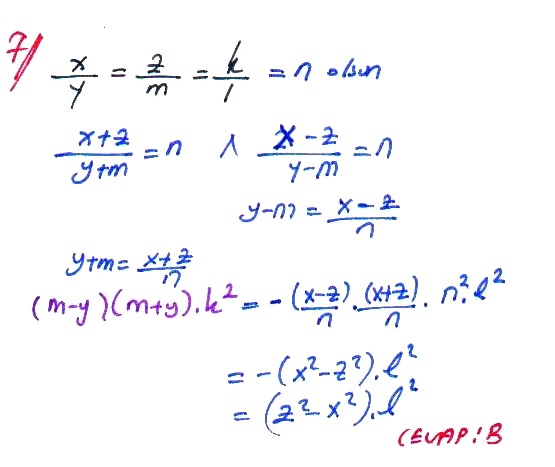 7/ x/y = z/m = k/l = n olsun
(x+z)/(y+m) = n ∧ (x-z)/(y-m) = n
y-m = (x-z)/n
y+m = (x+z)/n
(m-y)(m+y).k² = - (x-z)/n . (x+z)/n . n².l²
= -(x²-z²).l²
= (z²-x²).l²
CEVAP: B